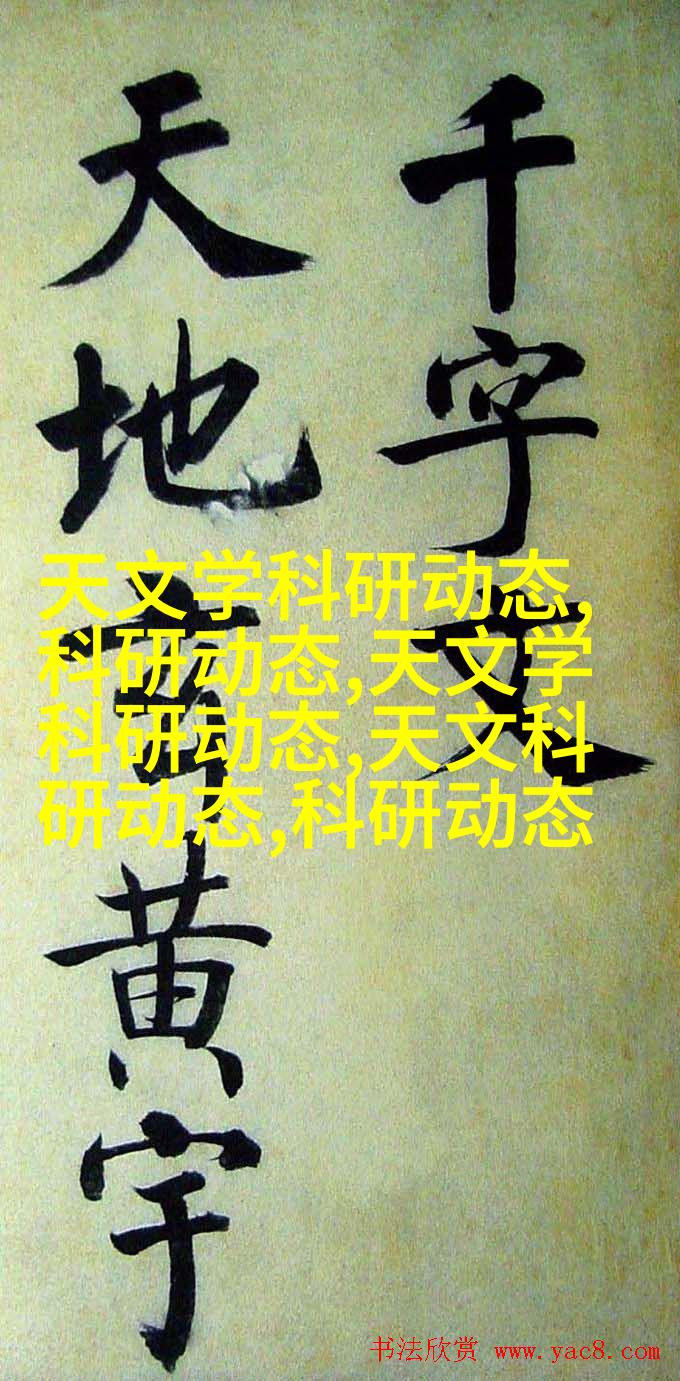 千字文
天地玄黄宇
天文学科研动态,
科研动态,天文学
科研动态,天文科
研动态,科研动态
书法欣赏 www.yac8.com